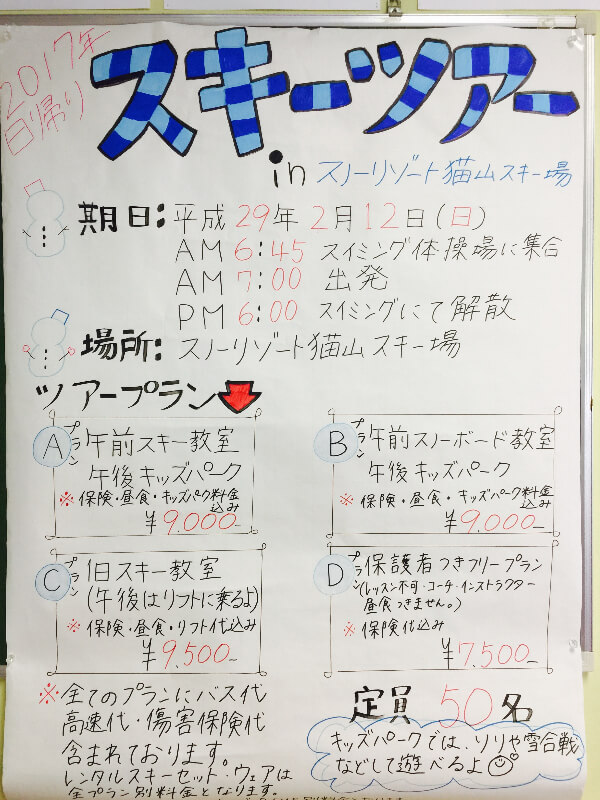 2017年
日帰り
スキーツアー
in スノーリゾート猫山スキー場
期日: 平成29年2月12日(日)
AM 6:45 スイミング体操場に集合
AM 7:00 出発
PM 6:00 スイミングにて解散
場所: スノーリゾート猫山スキー場
ツアープラン
Aプラン 午前スキー教室
午後キッズパーク
※保険・昼食・キッズパーク料金込み
¥9,000-
Bプラン 午前スノーボード教室
午後キッズパーク
※保険・昼食・キッズパーク料金込み
¥9,000-
Cプラン 1日スキー教室
(午後はリフトに乗るよ)
※保険・昼食・リフト代込み
¥9,500-
Dプラン 保護者つきフリープラン
(レッスン不可・コーチ・インストラクター
昼食つきません。)
※保険代込み
¥7,500-
※全てのプランにバス代
高速代・傷害保険代
含まれております。
レンタルスキーセット・ウェアは
全プラン別料金となります。
定員 50名
キッズパークでは、ソリや雪合戦
などして遊べるよ